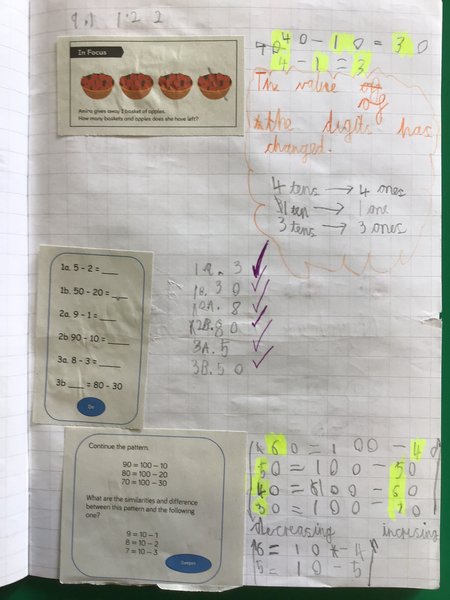 9.1 1:22
In Focus
Amira gives away 1 basket of apples.
How many baskets and apples does she have left?
40-10=30
4-1=3
The value
of
the digits has
changed.
4 tens → 4 ones
1 ten → 1 one
3 tens → 3 ones
1a. 5 - 2 = ___
1b. 50 - 20 = ___
2a. 9 - 1 = ___
2b 90 - 10 = ___
3a. 8 - 3 = ___
3b ___ = 80 - 30
Do
1A. 3
1B. 30
2A. 8
2B. 80
3A. 5
3B. 50
Continue the pattern.
90 = 100 – 10
80 = 100 – 20
70 = 100 – 30
What are the similarities and difference
between this pattern and the following
one?
9 = 10 – 1
8 = 10 – 2
7 = 10 – 3
Deepen
60=100-40
50=100-50
40=100-60
30=100-70
decreasing incrising
6=10-4
5=10-5